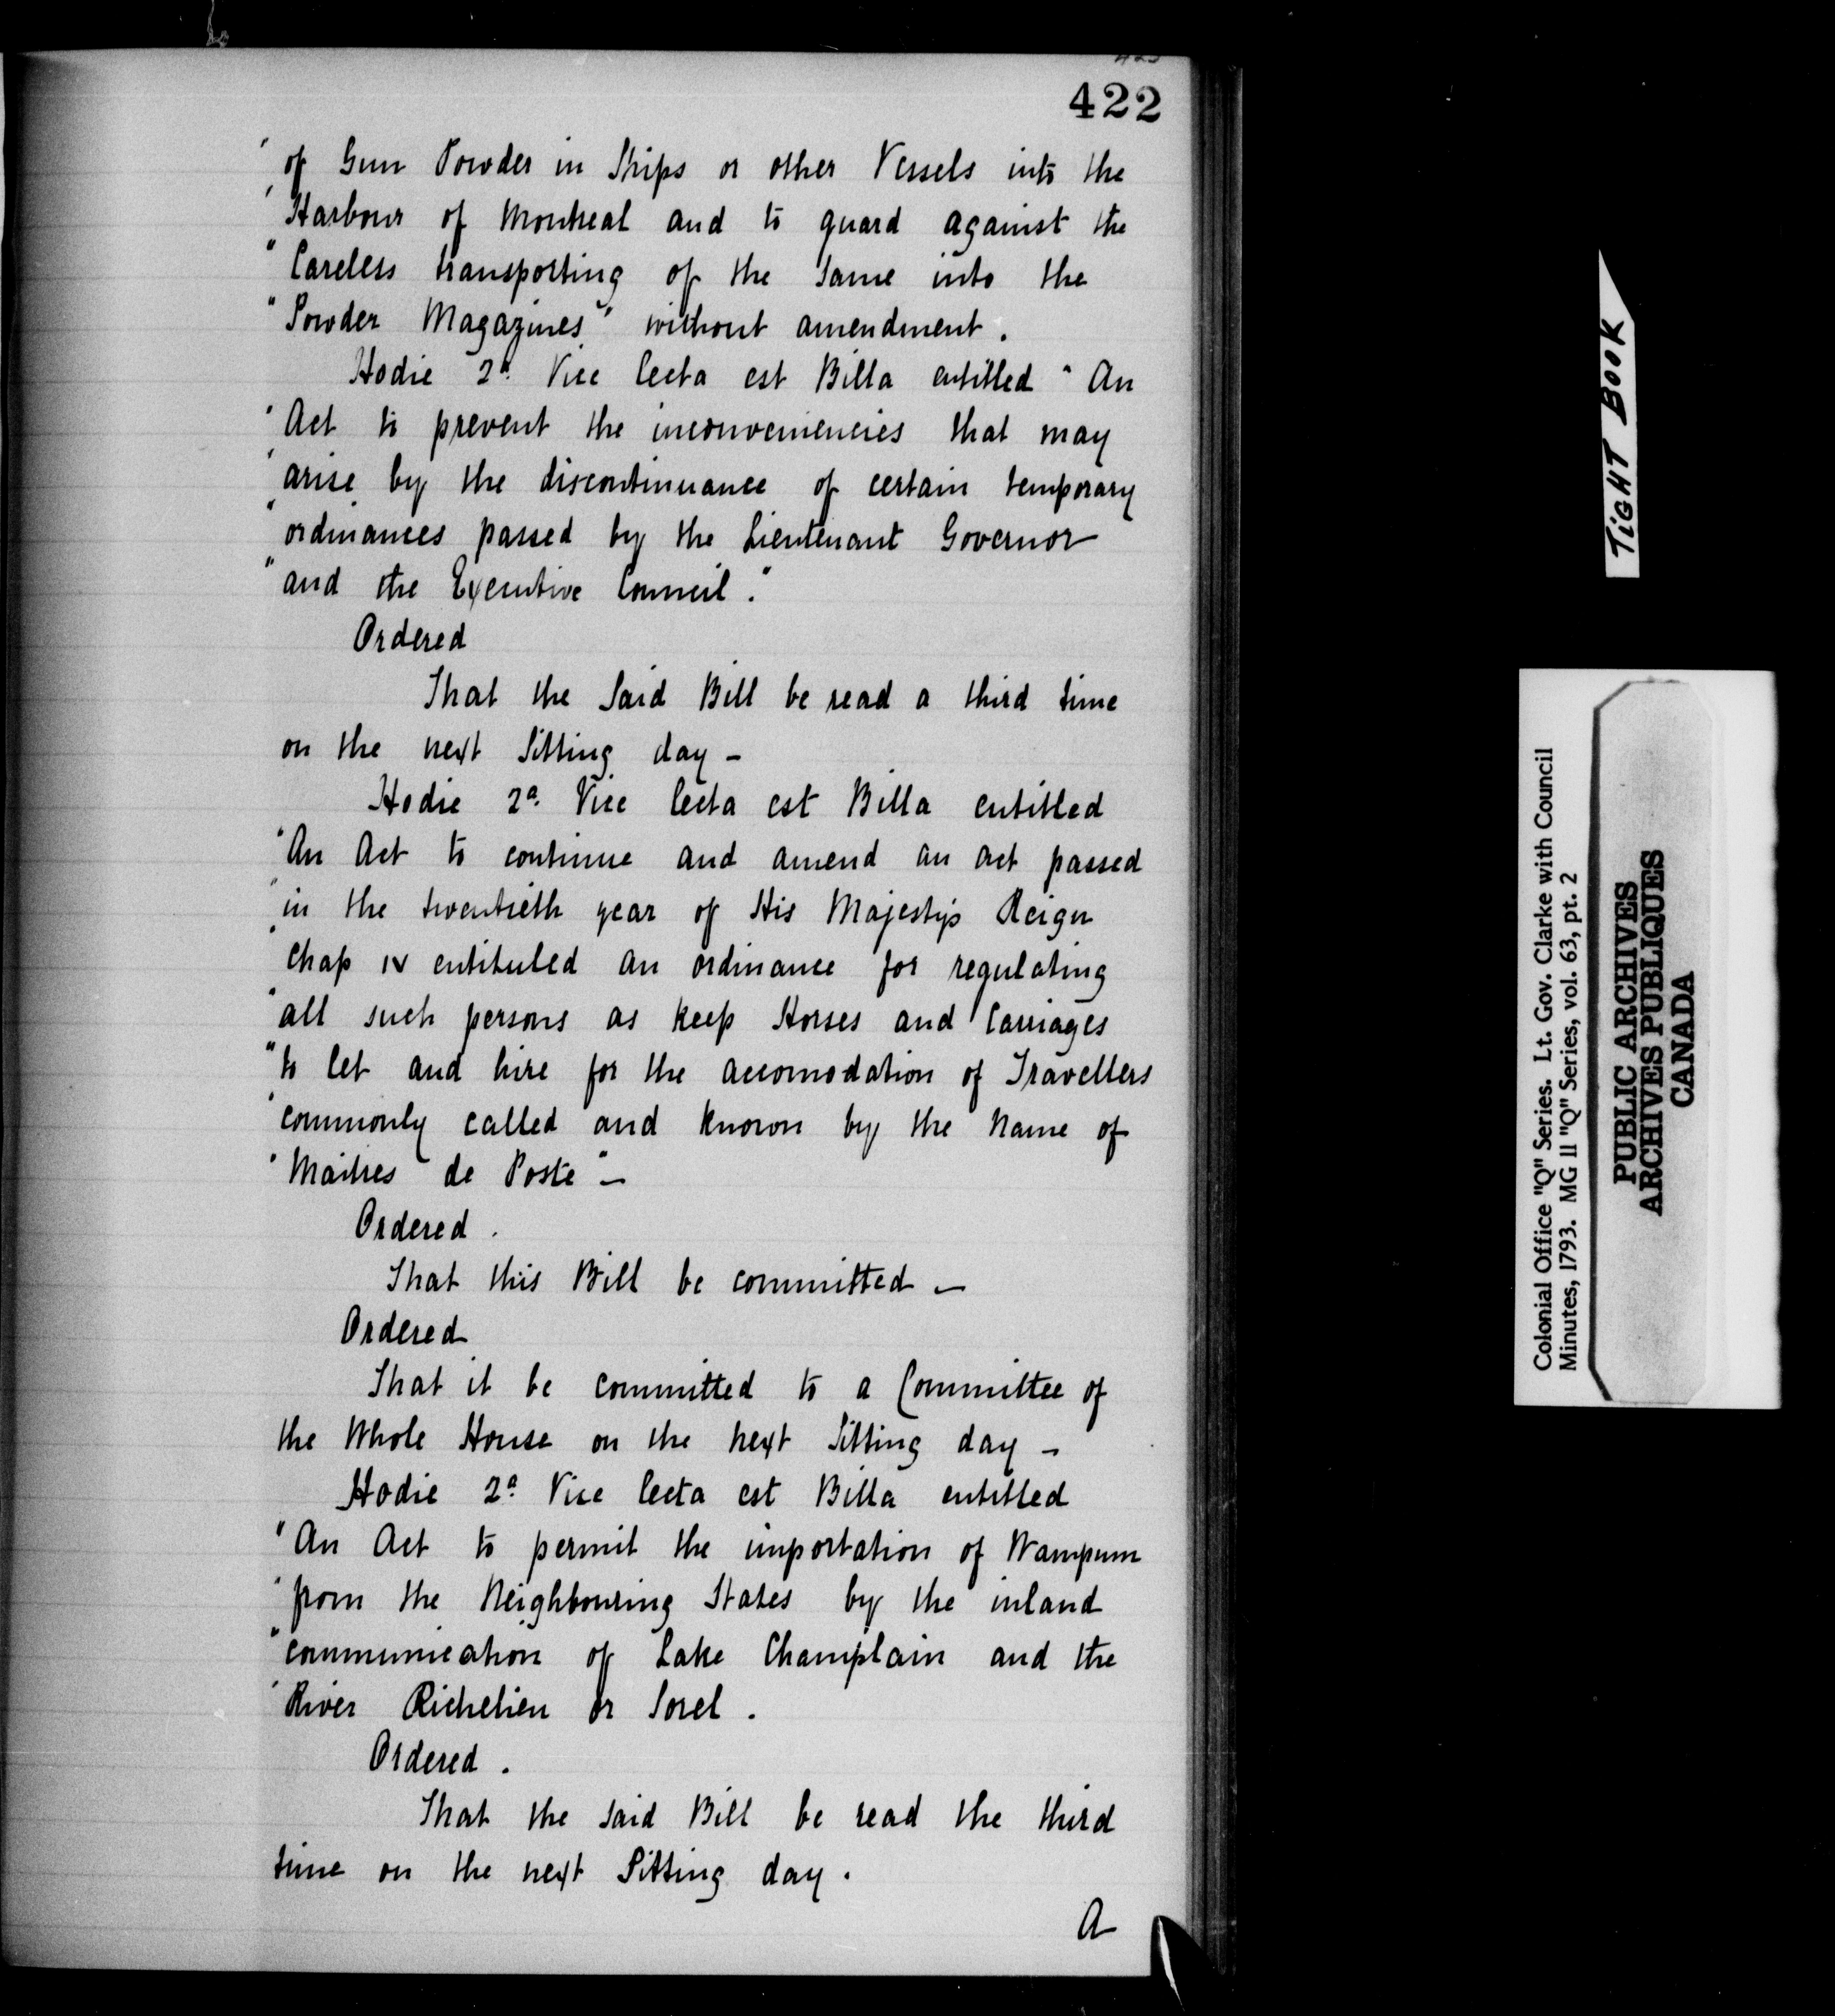 422
" of Gun Powder in Ships or other Vessels into the
" Harbour of Montreal and to guard against the
" Careless transporting of the same into the
" Powder Magazines" without amendment.
Hodie 2a Vice lecta est Billa entitled " An
" Act to prevent the inconveniencies that may
" arise by the discontinuance of certain temporary
" ordinances passed by the Lieutenant Governor
" and the Executive Council."
Ordered
That the Said Bill be read a third time
on the next Sitting day –
Hodie 2a Vice lecta est Billa entitled
" An Act to continue and amend an act passed
" in the twentieth year of His Majesty's Reign
" Chap IV entituled an ordinance for regulating
" all such persons as keep Horses and Carriages
" to let and hire for the accomodation of Travellers
" commonly called and known by the name of
" Maitres de Poste" –
Ordered.
That this Bill be committed –
Ordered
That it be committed to a Committee of
the Whole House on the next Sitting day –
Hodie 2a Vice lecta est Billa entitled
" An Act to permit the importation of Wampum
" from the Neighbouring States by the inland
" communication of Lake Champlain and the
" River Richelieu or Sorel.
Ordered.
That the said Bill be read the third
time on the next Sitting day.
A
TIGHT BOOK
Colonial Office "Q" Series. Lt. Gov. Clarke with Council
Minutes, 1793. MG 11 "Q" Series, vol. 63, pt. 2
PUBLIC ARCHIVES
ARCHIVES PUBLIQUES
CANADA